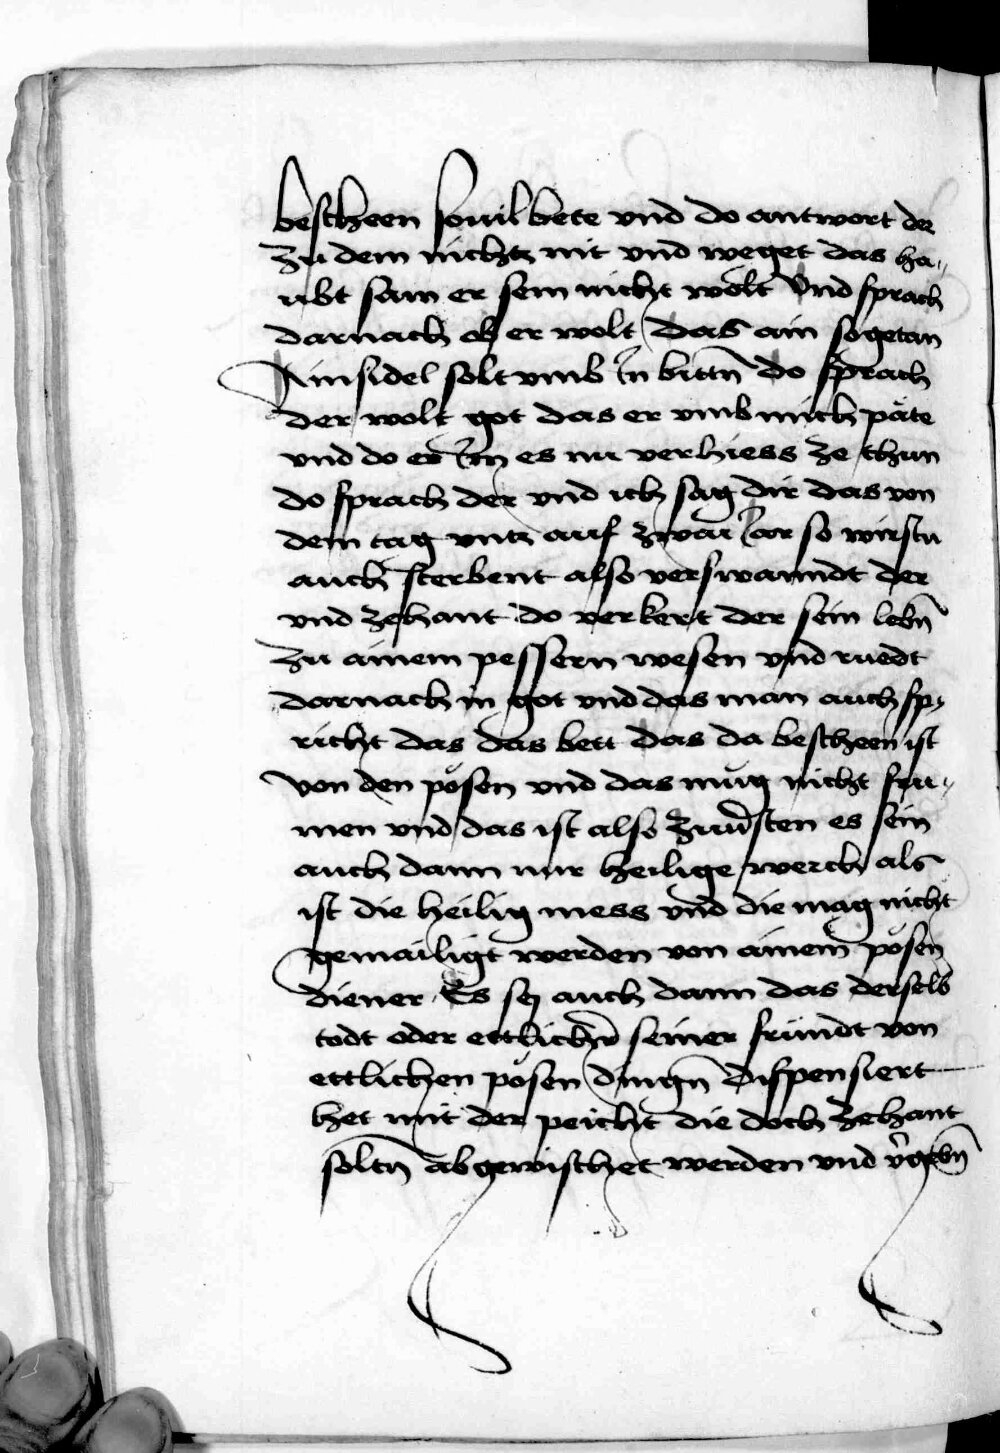 bescheen souil bete vnd do antwort der
zu dem nichtz nit vnd weget das ha-
ubt sam er sein nicht wölt Vnd sprach
darnach ob er wolt das ain sogetan
Ainsidel solt vmb in bittn̄ do sprach
der wolt got das er vmb mich päte
vnd do er im es nu verhiess ze thun
do sprach der vnd ich sag dir das von
dem tag vntz auf zwai iar so wirstu
auch sterbent also verswanndt der
vnd zehant do verkert der sein lebn̄
zu ainem pessern wesen vnd ruedt
darnach in got vnd das man auch sp-
richt das das bett das da bescheen ist
von den pösen vnd das müg nicht fru-
men vnd das ist also zuu͛sten es sein
auch dann nur heilige werck als
ist die heilig mess vnd die mag nicht
gemailigt werden von ainem pösen
diener. Es sej auch dann das derselb
todt oder ettlich͛ seiner fründt von
ettlichen pösen dingn̄ dispensiert
het mit der peicht die doch zehant
soltn̄ abgewischet werden vnd v͛gebn̄